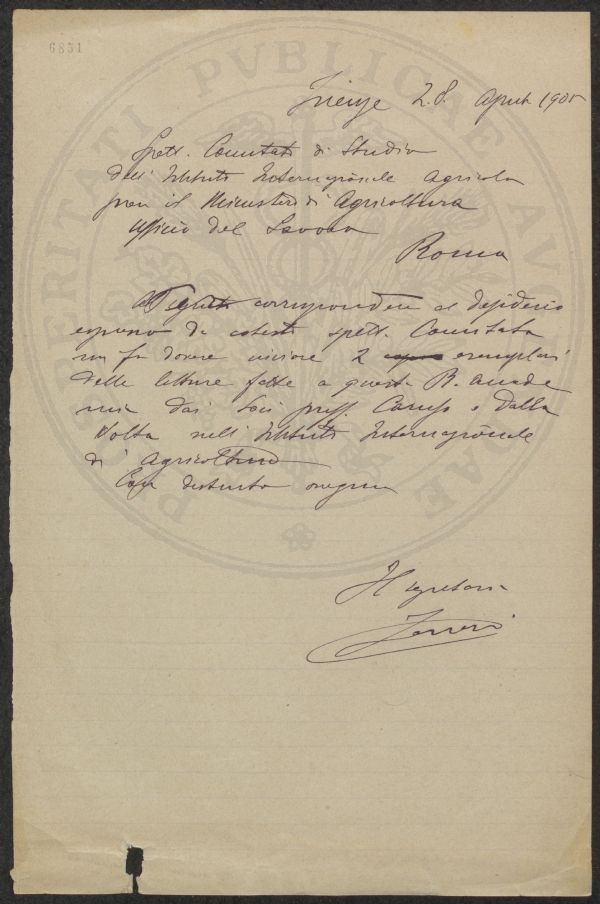 6851
PROSPERITATI PVBLICAE AVGENDAE
Firenze 28. Aprile 1905
Spett. Comitato di Studio
dell'Istituto Internazionale Agricolo
presso il Ministero di Agricoltura
Ufficio del Lavoro
Roma
corrispondere al desiderio
espresso da cotesto spett. Comitato
mi fo dovere inviare 2 esemplari
delle letture fatte a questa R. Accade
mia dai Soci proff. Caruso e Dalla
Volta sull'Istituto Internazionale
di Agricoltura
Con distinto ossequio
Il segretario